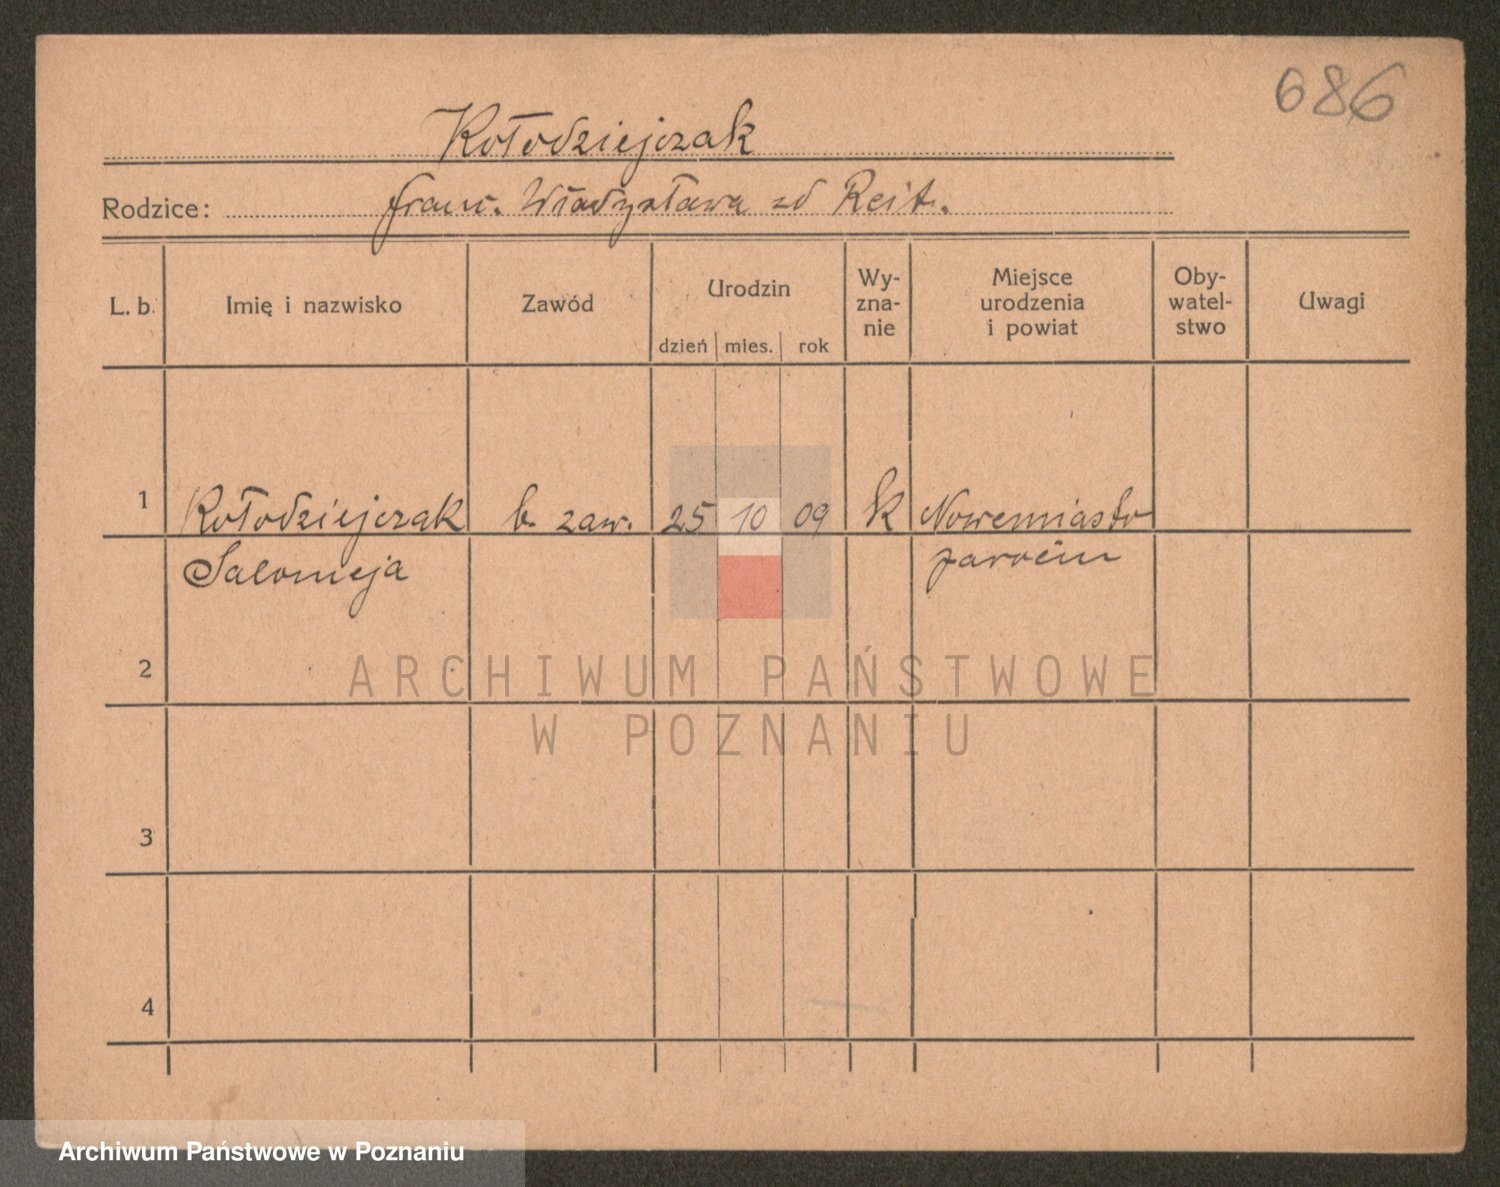 686
Kołodziejczak
Rodzice: franc. Władysława zd Reit.
L. b. Imię i nazwisko Zawód Urodzin dzień mies. rok Wy-zna-nie Miejsce urodzenia i powiat Oby-watel-stwo Uwagi
1 Kołodziejczak b. zaw. 25 10 09 k Nowemiasto
Salomeja Jarocin
2
ARCHIWUM PAŃSTWOWE
W POZNANIU
3
4
Archiwum Państwowe w Poznaniu